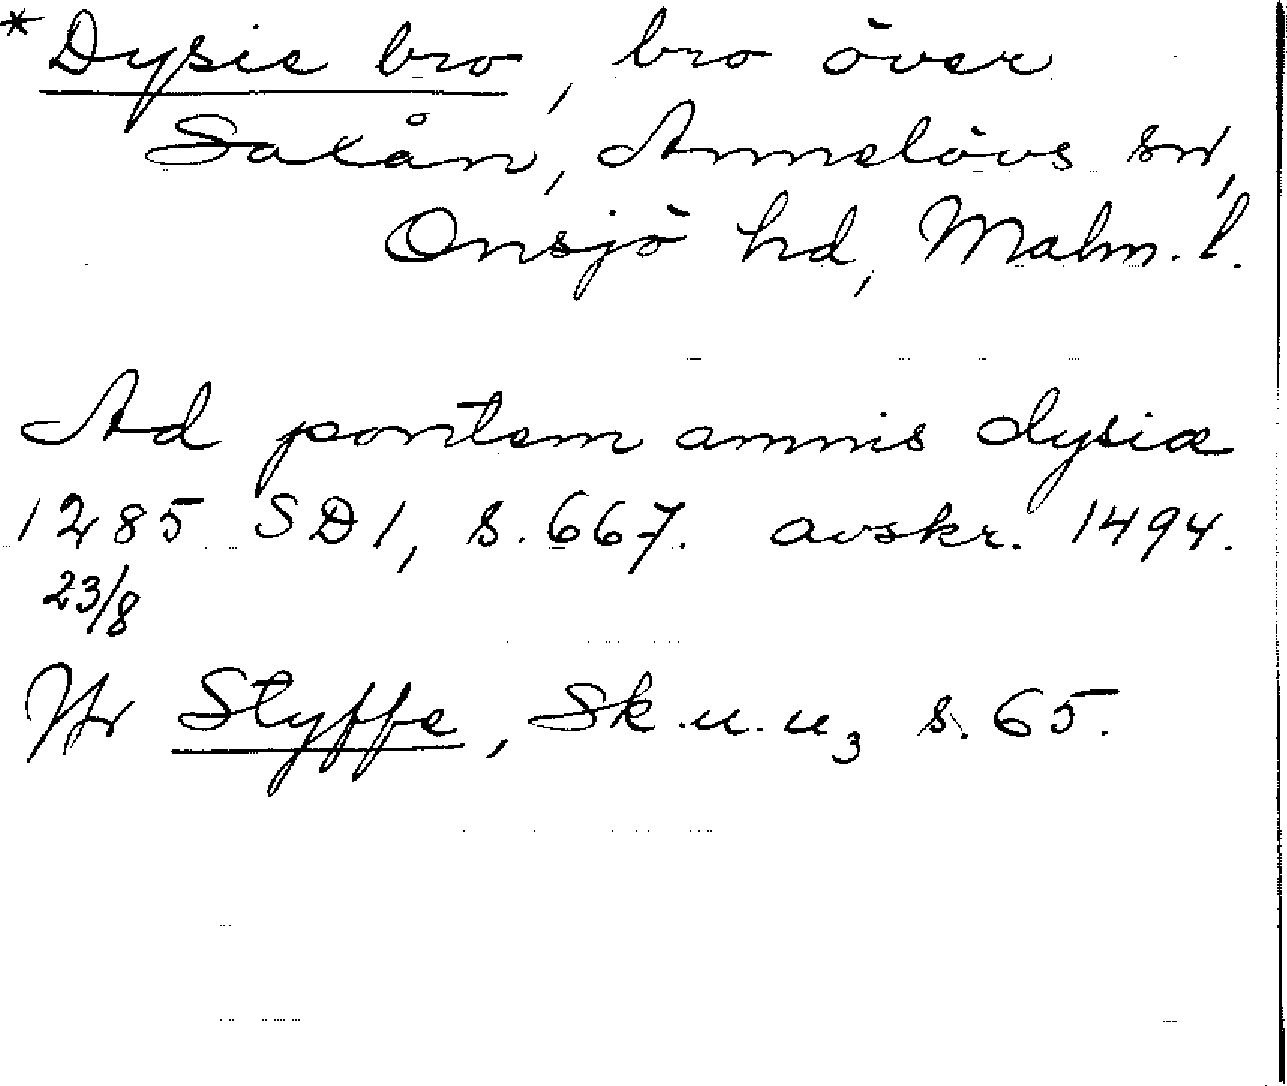 *Dysie bro, bro över
Saxån, Annelövs sn,
Onsjö hd, Malm. l.
Ad pontem amnis dysiæ
1285 SD 1, s. 667. avskr. 1494.
23/8
Jfr Styffe, Sk.u.u3 s. 65.